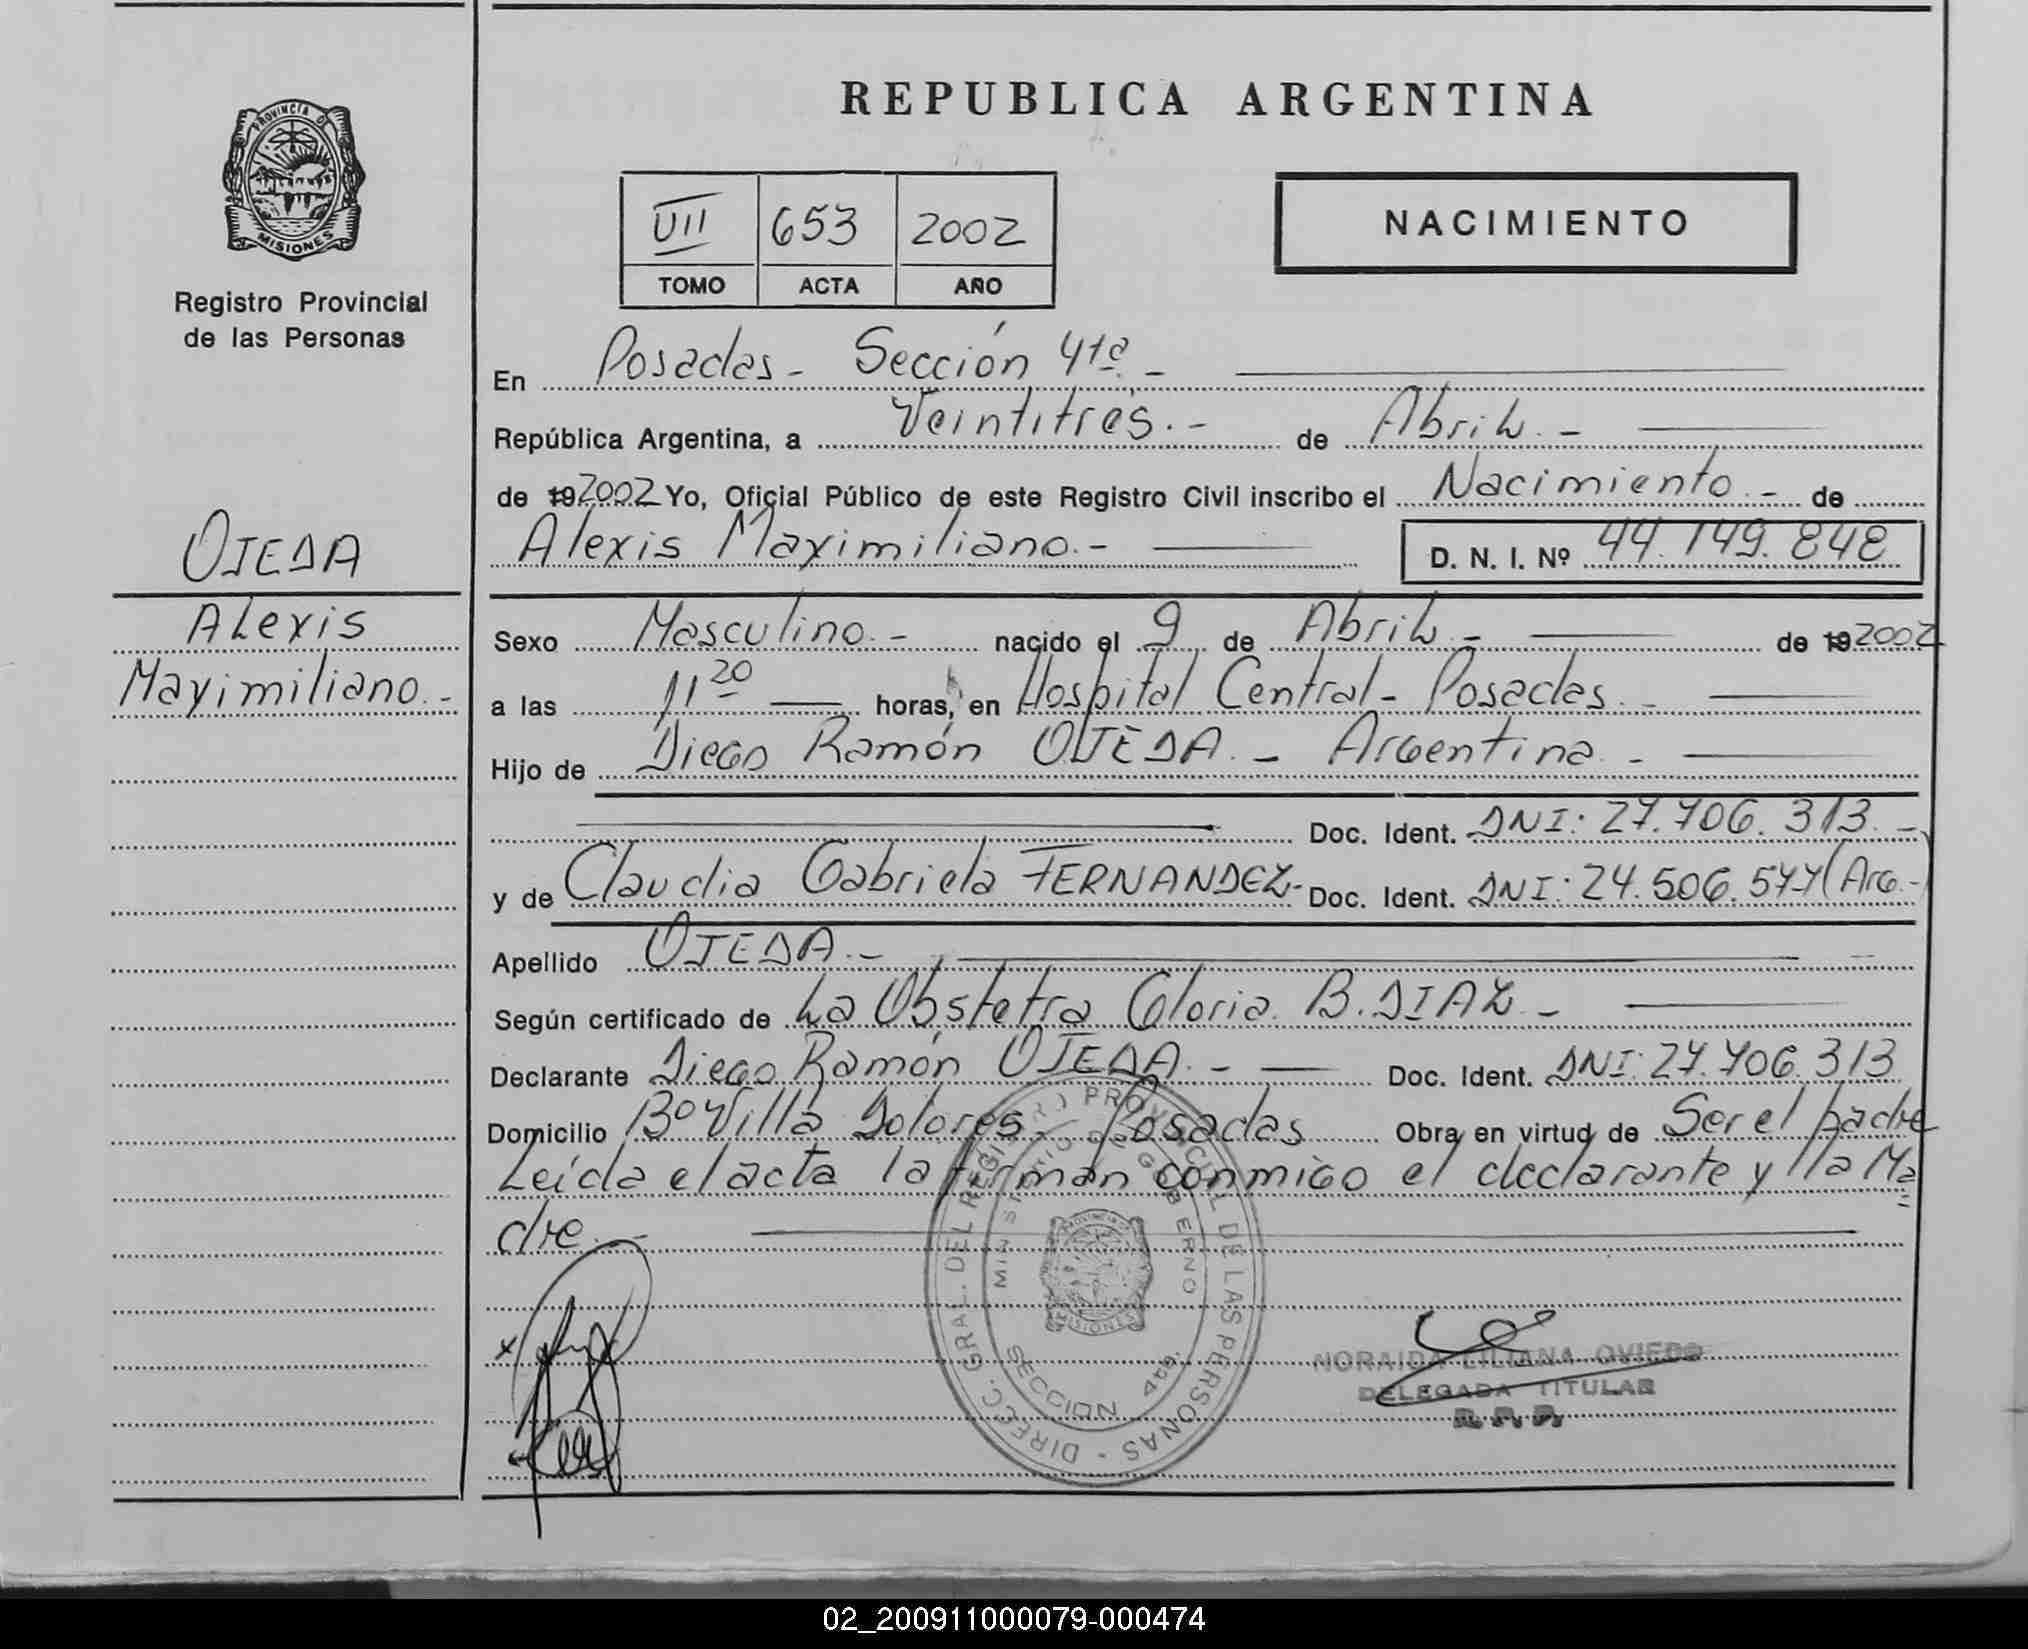 PROVINCIA DE
MISIONES
Registro Provincial
de las Personas
OJEDA
Alexis
Maximiliano.-
REPUBLICA ARGENTINA
VII 653 2002
TOMO ACTA AÑO
NACIMIENTO
En Posadas - Sección 4ta. -
República Argentina, a Veintitrés.- de Abril. -
de 19 2002 Yo, Oficial Público de este Registro Civil inscribo el Nacimiento. - de
Alexis Maximiliano.- D. N. I. Nº 44.149.848
Sexo Masculino. - nacido el 9 de Abril. - de 19 2002
a las 11 20 horas, en Hospital Central - Posadas. -
Hijo de Diego Ramón OJEDA. - Argentina. -
Doc. Ident. DNI: 27.706.313. -
y de Claudia Gabriela FERNANDEZ.- Doc. Ident. DNI: 24.506.577 (Arg.-)
Apellido OJEDA. -
Según certificado de La Obstetra Gloria B. DIAZ. -
Declarante Diego Ramón OJEDA. - Doc. Ident. DNI: 27.706.313
Domicilio Bº Villa Dolores - Posadas Obra en virtud de Ser el padre
Leída el acta la firman conmigo el declarante y lla Ma
dre. -
DIRECC. GRAL. DEL REGISTRO PROVINCIAL DE LAS PERSONAS -
MINISTERIO DE GOBIERNO
PROVINCIA DE
MISIONES
SECCION 4ta.
NORAIDA LILIANA OVIEDO
DELEGADA TITULAR
R. P. P.
02_200911000079-000474